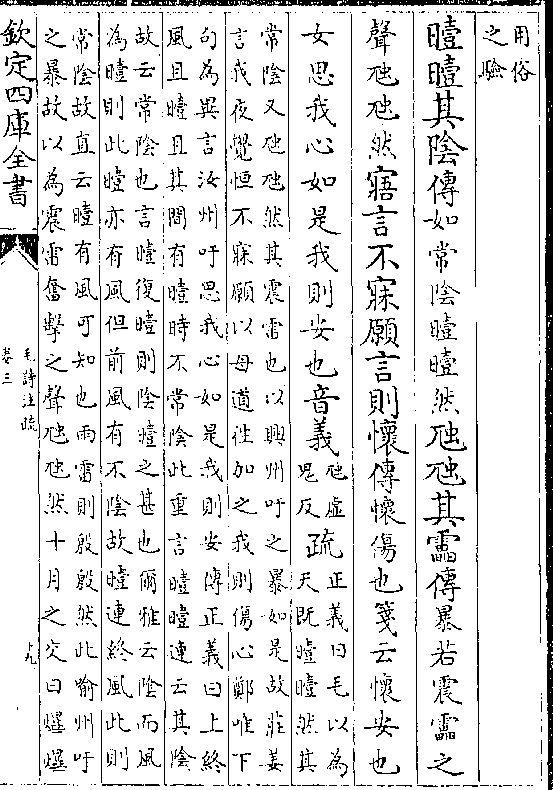 用俗
之驗
曀曀其陰傳如常陰曀曀然虺虺其靁傳暴若震靁之
聲虺虺然寤言不寐願言則懷傳懷傷也箋云懷安也
女思我心如是我則安也音義
虺虛
鬼反
疏
正義曰毛以為
天既曀曀然其
常陰又虺虺然其震雷也以興州吁之暴如是故莊姜
言我夜覺恒不寐願以母道往加之我則傷心鄭唯下
句為異言汝州吁思我心如是我則安傳正義曰上終
風且曀且其間有曀時不常陰此重言曀曀連云其陰
故云常陰也言曀復曀則陰曀之甚也爾雅云陰而風
為曀則此曀亦有風但前風有不陰故曀連終風此則
常陰故直云曀有風可知也雨雷則殷殷然此喻州吁
之暴故以為震雷奮擊之聲虺虺然十月之交曰爗爗
欽定四庫全書
毛詩注疏
卷三
十九